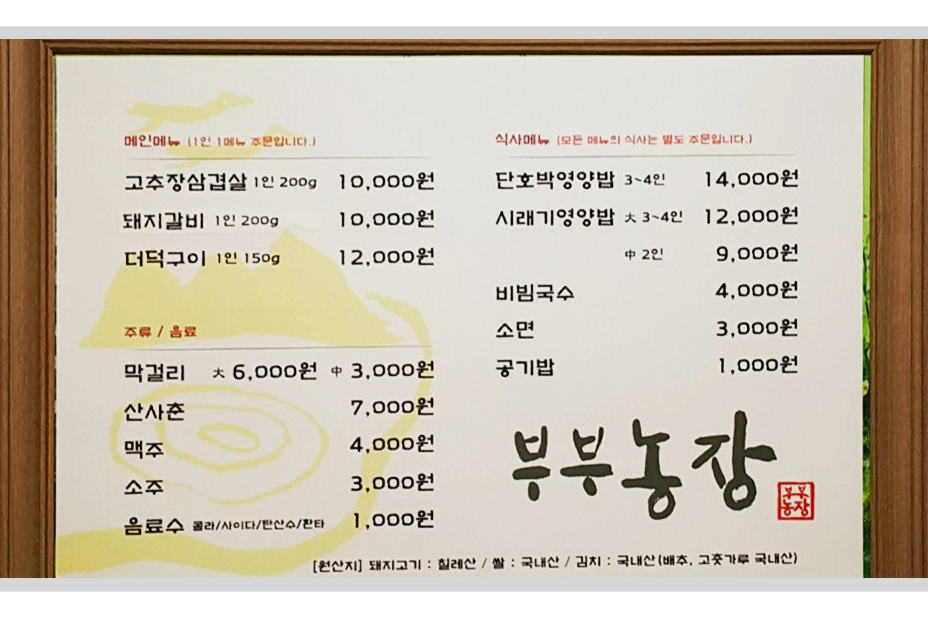 메인메뉴 (1인 1메뉴 주문입니다.)
고추장삼겹살 1인 200g 10,000원
돼지갈비 1인 200g 10,000원
더덕구이 1인 150g 12,000원
주류 / 음료
막걸리 大 6,000원 中 3,000원
산사춘 7,000원
맥주 4,000원
소주 3,000원
음료수 콜라/사이다/탄산수/환타 1,000원
식사메뉴 (모든 메뉴의 식사는 별도 주문입니다.)
단호박영양밥 3~4인 14,000원
시래기영양밥 大 3~4인 12,000원
中 2인 9,000원
비빔국수 4,000원
소면 3,000원
공기밥 1,000원
부부농장
부부
농장
[원산지] 돼지고기 : 칠레산 / 쌀 : 국내산 / 김치 : 국내산(배추, 고춧가루 국내산)